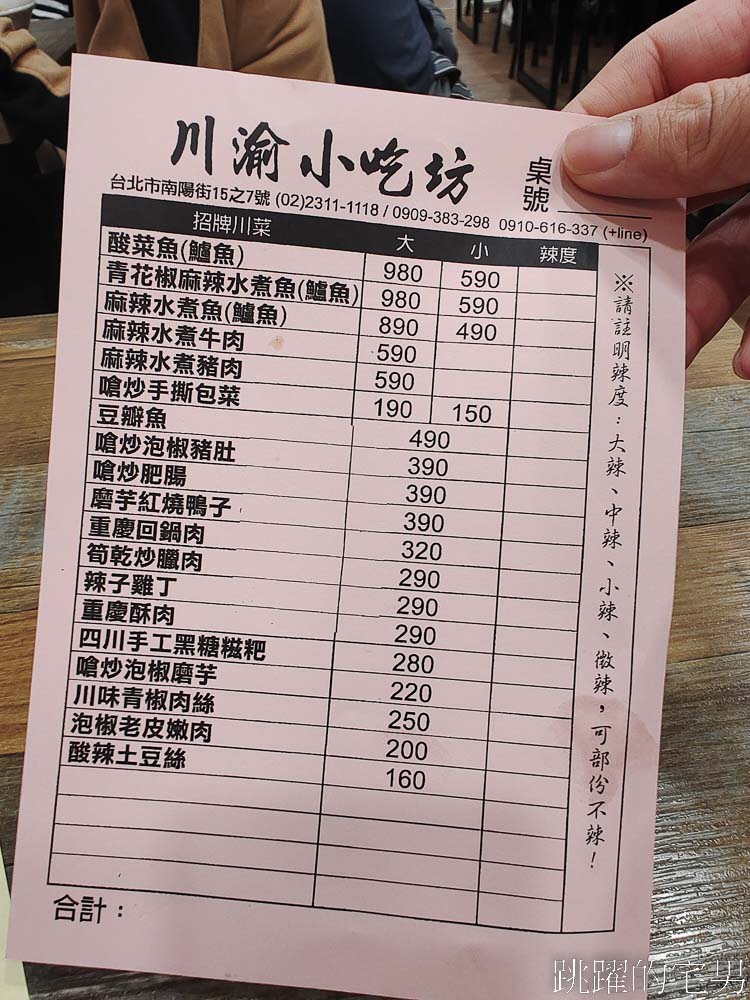 川渝小吃坊
桌號
台北市南陽街15之7號 (02)2311-1118 / 0909-383-298 0910-616-337 (+line)
招牌川菜 大 小 辣度
酸菜魚(鱸魚) 980 590
青花椒麻辣水煮魚(鱸魚) 980 590
麻辣水煮魚(鱸魚) 890 490
麻辣水煮牛肉 590
麻辣水煮豬肉 590
嗆炒手撕包菜 190 150
豆瓣魚 490
嗆炒泡椒豬肚 390
嗆炒肥腸 390
磨芋紅燒鴨子 390
重慶回鍋肉 320
筍乾炒臘肉 290
辣子雞丁 290
重慶酥肉 290
四川手工黑糖糍粑 280
嗆炒泡椒磨芋 220
川味青椒肉絲 250
泡椒老皮嫩肉 200
酸辣土豆絲 160
※請註明辣度：大辣、中辣、小辣、微辣，可部份不辣！
合計：
跳躍的宅男